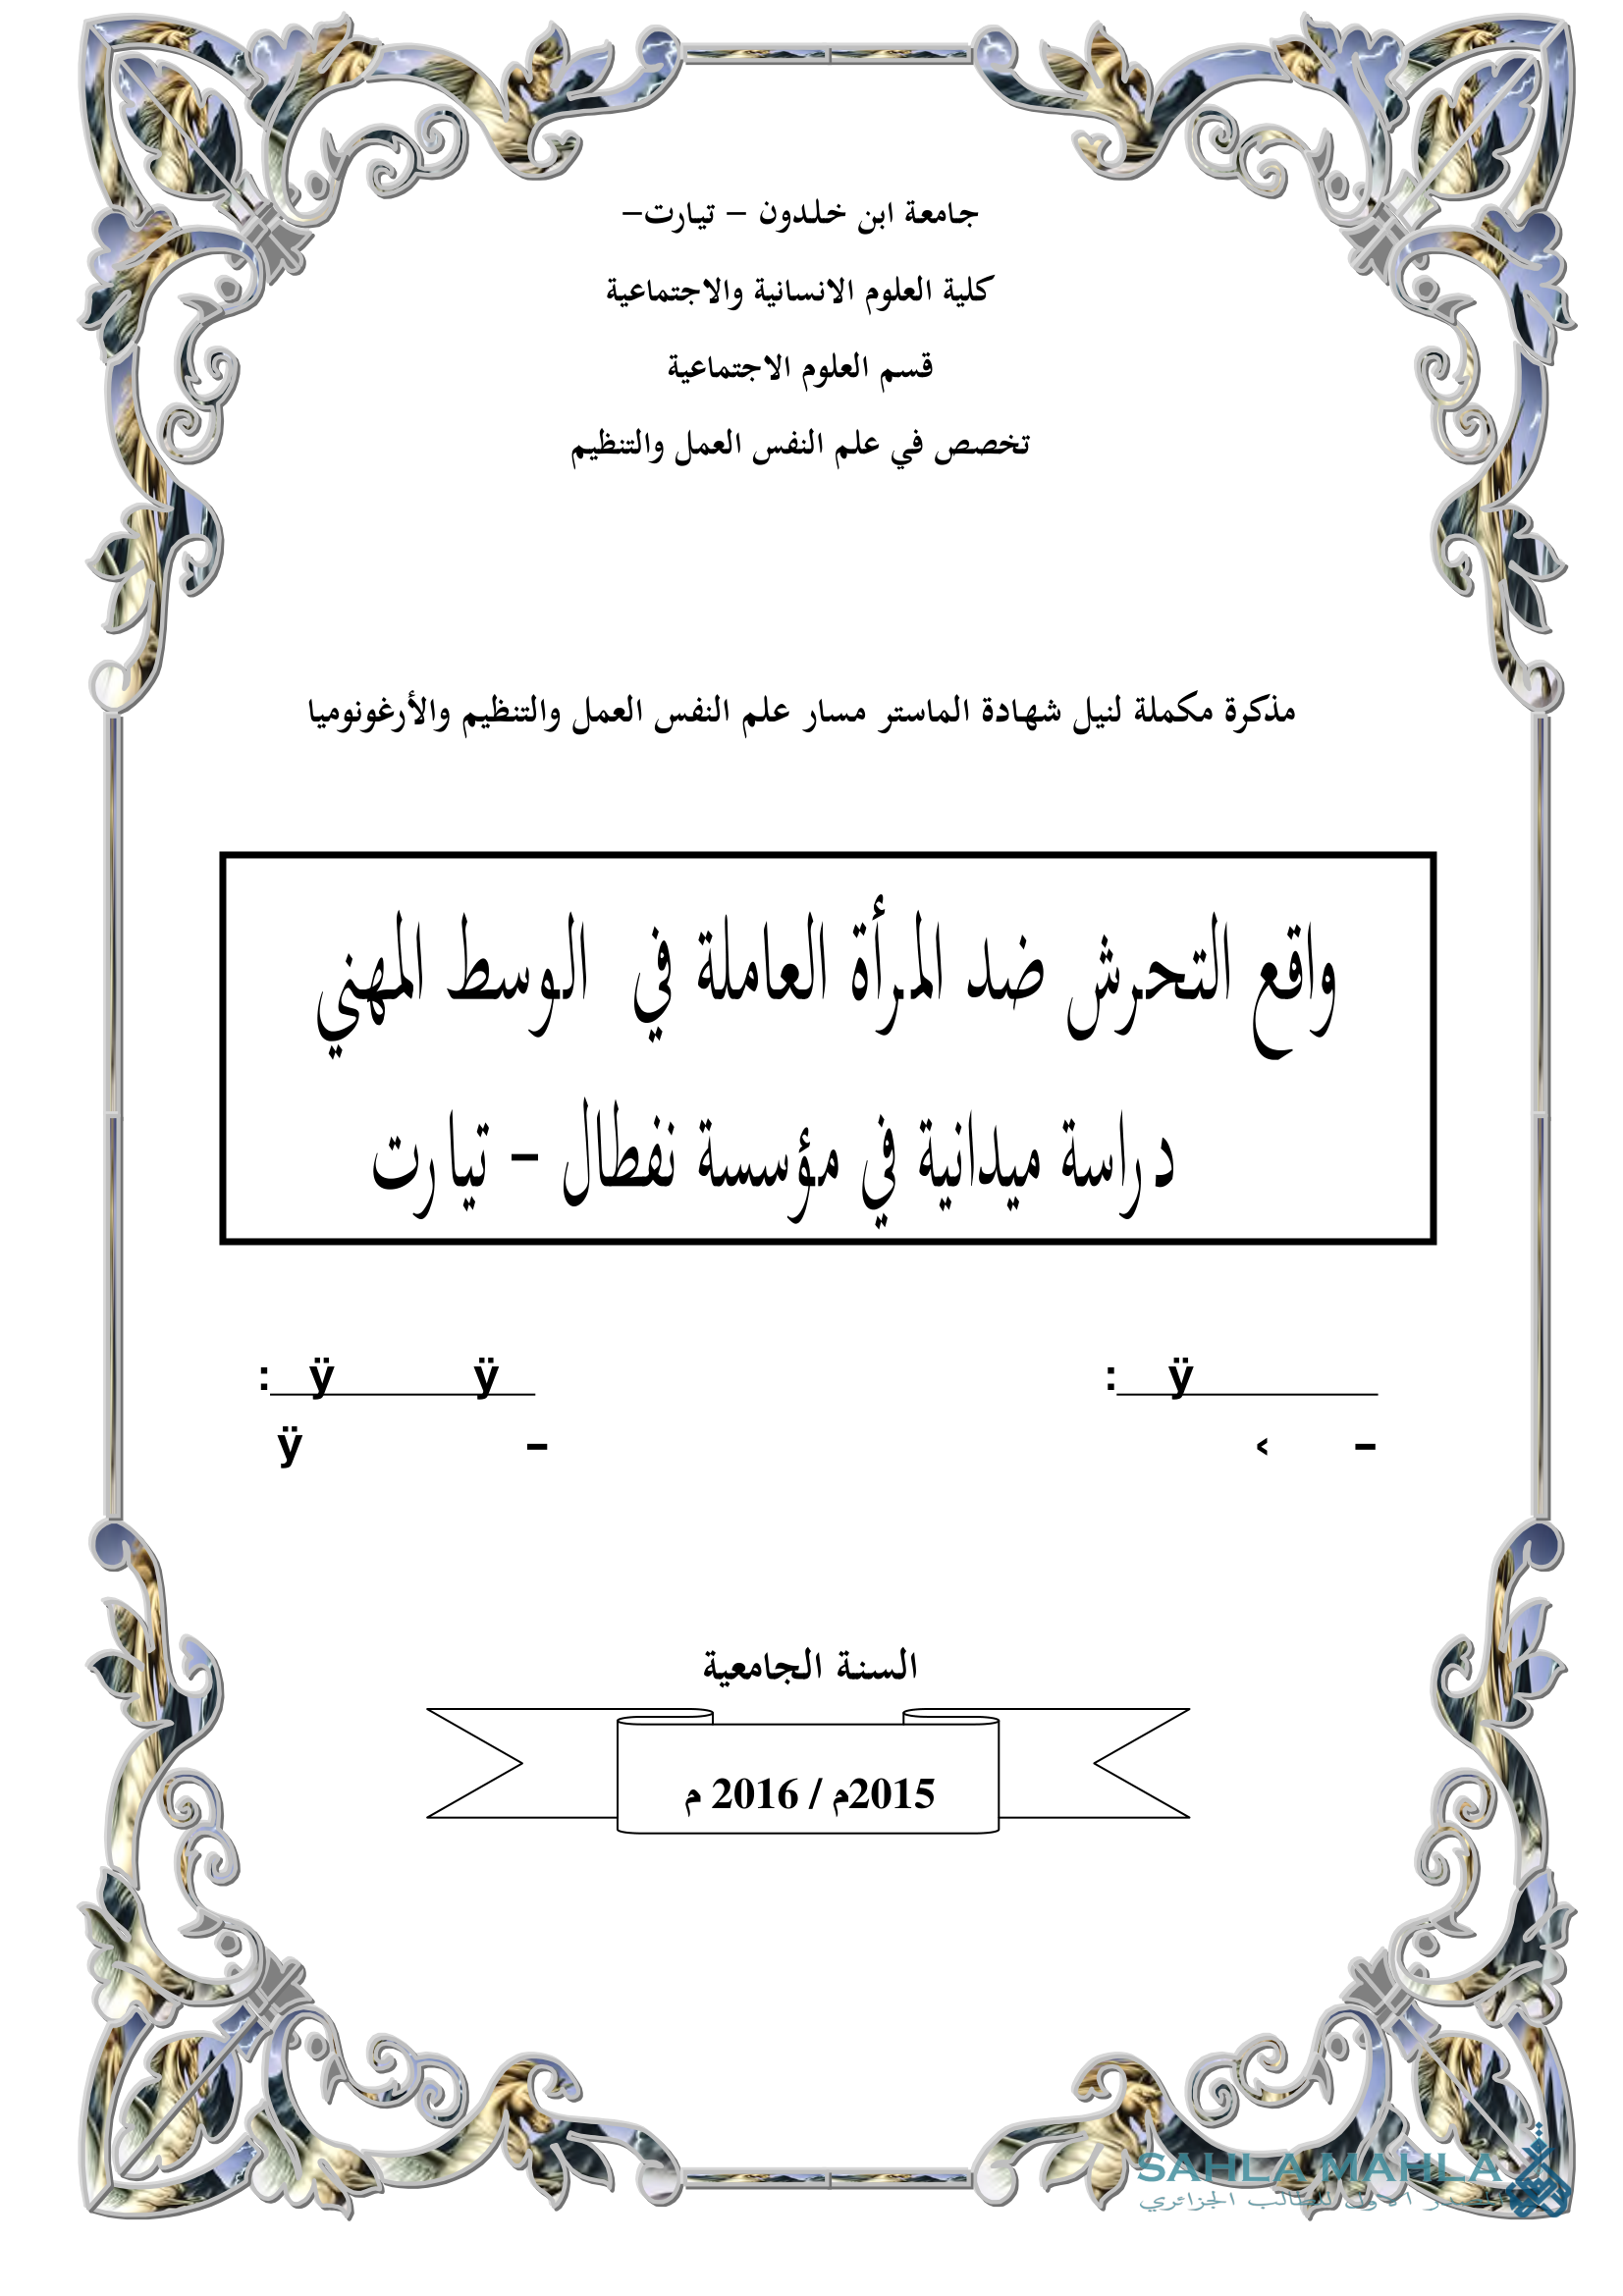 جامعة ابن خلدون – تيارت–
كلية العلوم الانسانية والاجتماعية
قسم العلوم الاجتماعية
تخصص في علم النفس العمل والتنظيم
مذكرة مكملة لنيل شهادة الماستر مسار علم النفس العمل والتنظيم والأرغونوميا
واقع التحرش ضد المرأة العاملة في الوسط المهني
دراسة ميدانية في مؤسسة نفطال – تيارت
ÿ :
ÿ ÿ :
– ‹
– ÿ
السنة الجامعية
2015م / 2016 م
SAHLA MAHLA
المصدر الاول للطالب الجزائري